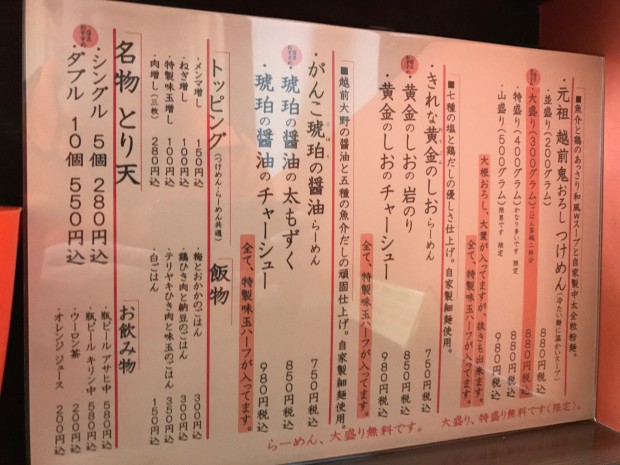 ■魚介と鶏のあっさり和風Wスープと自家製中太全粒粉麺。
・元祖 越前鬼おろし つけめん(冷たい麺に温かいスープ)
・並盛り(200グラム) 880円税込
・大盛り(300グラム) 880円税込
・特盛り(400グラム) かなり多いです 限定 880円税込
・山盛り(500グラム) 限界です 限定 980円税込
大根おろし、大葉が入ってますが、抜きも出来ます。
全て、特製味玉ハーフが入ってます。
■七種の塩と鶏だしの優しさ仕上げ。自家製細麺使用。
・きれな黄金のしお らーめん 750円税込
黄金のしおの岩のり 850円税込
黄金のしおのチャーシュー 980円税込
全て、特製味玉ハーフが入ってます。
■越前大野の醤油と五種の魚介だしの頑固仕上げ。自家製細麺使用。
・がんこ琥珀の醤油 らーめん 750円税込
琥珀の醤油の太もずく 850円税込
琥珀の醤油のチャーシュー 980円税込
全て、特製味玉ハーフが入ってます。
トッピング(つけめん・らーめん共通)
・メンマ増し 150円込
・ねぎ増し 100円込
・特製味玉増し 100円込
・肉増し(三枚) 280円込
飯物
・梅とおかかのごはん 300円込
・鶏ひき肉と納豆のごはん 300円込
・テリヤキひき肉と味玉のごはん 350円込
・白ごはん 150円込
名物 とり天
・シングル 5個 280円込
・ダブル 10個 550円込
お飲み物
・瓶ビール アサヒ中 580円込
・瓶ビール キリン中 580円込
・ウーロン茶 200円込
・オレンジジュース 200円込
大盛り、特盛り無料です(限定)。
らーめん、大盛り無料です。